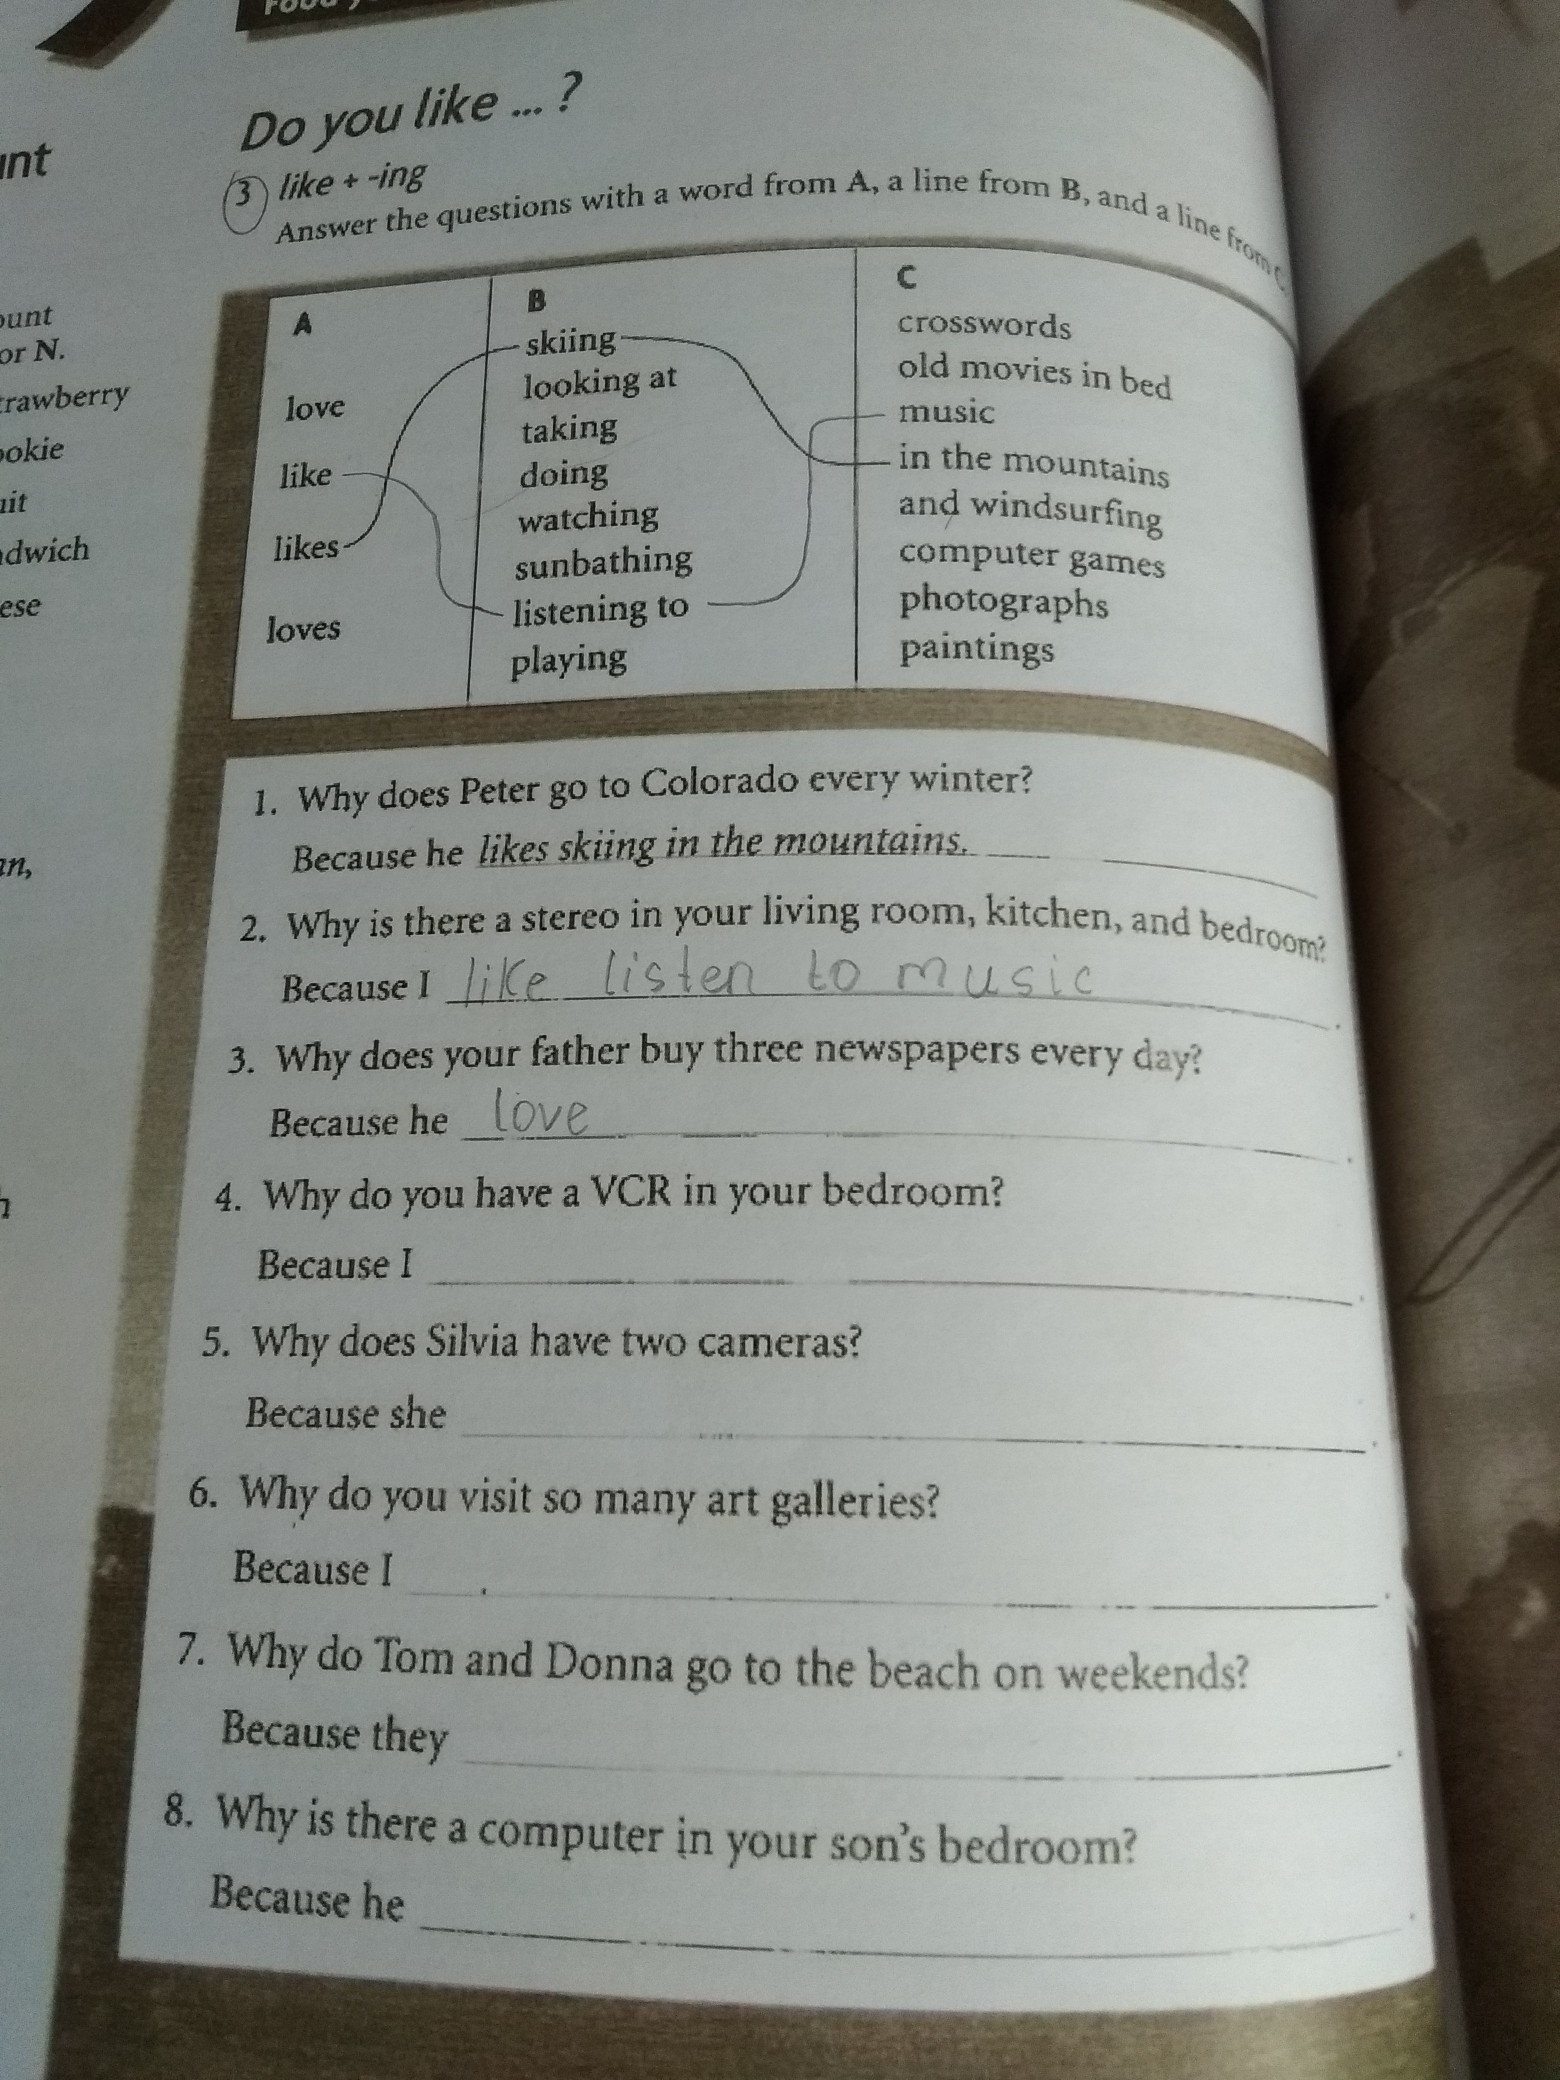 Do you like ... ?
3 like + -ing
Answer the questions with a word from A, a line from B, and a line from C
A
love
like
likes
loves
B
skiing
looking at
taking
doing
watching
sunbathing
listening to
playing
C
crosswords
old movies in bed
music
in the mountains
and windsurfing
computer games
photographs
paintings
1. Why does Peter go to Colorado every winter?
Because he likes skiing in the mountains.
2. Why is there a stereo in your living room, kitchen, and bedroom?
Because I like listen to music.
3. Why does your father buy three newspapers every day?
Because he love.
4. Why do you have a VCR in your bedroom?
Because I.
5. Why does Silvia have two cameras?
Because she.
6. Why do you visit so many art galleries?
Because I.
7. Why do Tom and Donna go to the beach on weekends?
Because they.
8. Why is there a computer in your son's bedroom?
Because he.
or N.